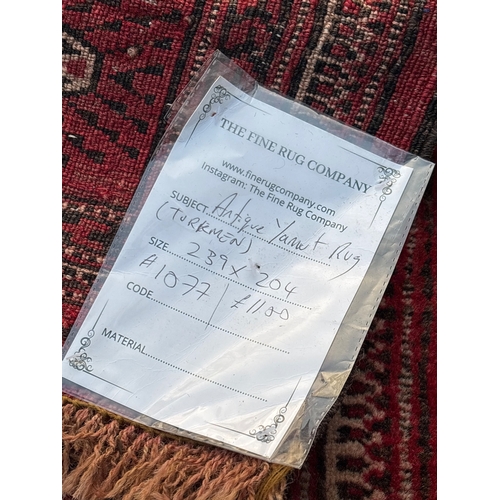 THE FINE RUG COMPANY
www.finerugcompany.com
Instagram: The Fine Rug Company
SUBJECT Antique Yamut Rug
(TURKMEN)
SIZE 239 x 204
A1077 / £1100
CODE
MATERIAL